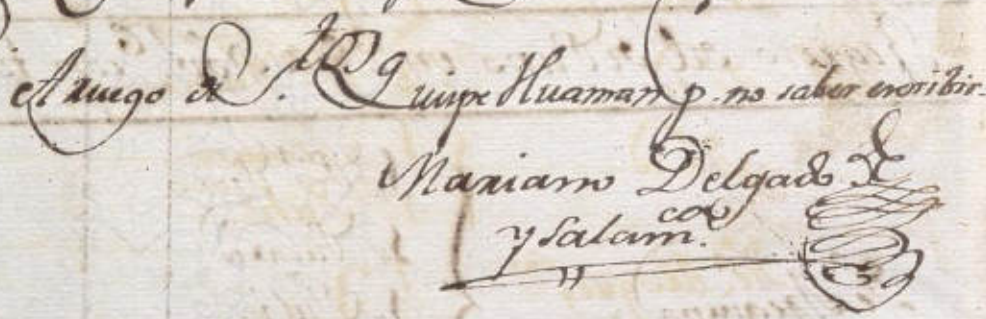 A ruego de S.tiago Quispe Huaman p. no saber escribir.
Mariano Delgado
y Salam.ca